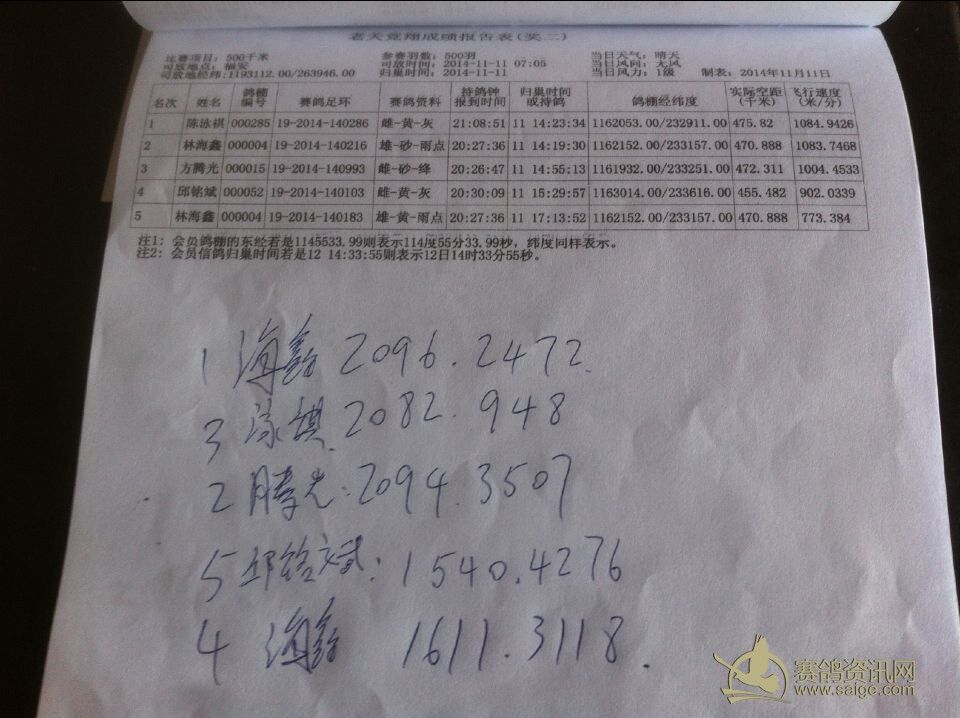 老夫竞翔成绩报告表(奖二)
比赛项目: 500千米 参赛羽数: 500羽 当日天气: 晴天
司放地点: 福安 司放时间: 2014-11-11 07:05 当日风向: 无风
司放地经纬: 1193112.00/263946.00 归巢时间: 2014-11-11 当日风力: 1级 制表: 2014年11月11日
名次 姓名 鸽棚编号 赛鸽足环 赛鸽资料 持鸽钟报到时间 归巢时间或持鸽 鸽棚经纬度 实际空距(千米) 飞行速度(米/分)
1 陈泳祺 000285 19-2014-140286 雌-黄-灰 21:08:51 11 14:23:34 1162053.00/232911.00 475.82 1084.9426
2 林海鑫 000004 19-2014-140216 雄-砂-雨点 20:27:36 11 14:19:30 1162152.00/233157.00 470.888 1083.7468
3 方腾光 000015 19-2014-140993 雌-砂-绛 20:26:47 11 14:55:13 1161932.00/233251.00 472.311 1004.4533
4 邱铭斌 000052 19-2014-140103 雌-黄-灰 20:30:09 11 15:29:57 1163014.00/233616.00 455.482 902.0339
5 林海鑫 000004 19-2014-140183 雄-黄-雨点 20:27:36 11 17:13:52 1162152.00/233157.00 470.888 773.384
注1: 会员鸽棚的东经若是1145533.99则表示114度55分33.99秒，纬度同样表示。
注2: 会员信鸽归巢时间若是12 14:33:55则表示12日14时33分55秒。
1 海鑫 2096.2472.
3 泳祺 2082.948
2 腾光: 2094.3507
5 邱铭斌: 1540.4276
4 海鑫 1611.3118.
赛鸽资讯网
www.saige.com